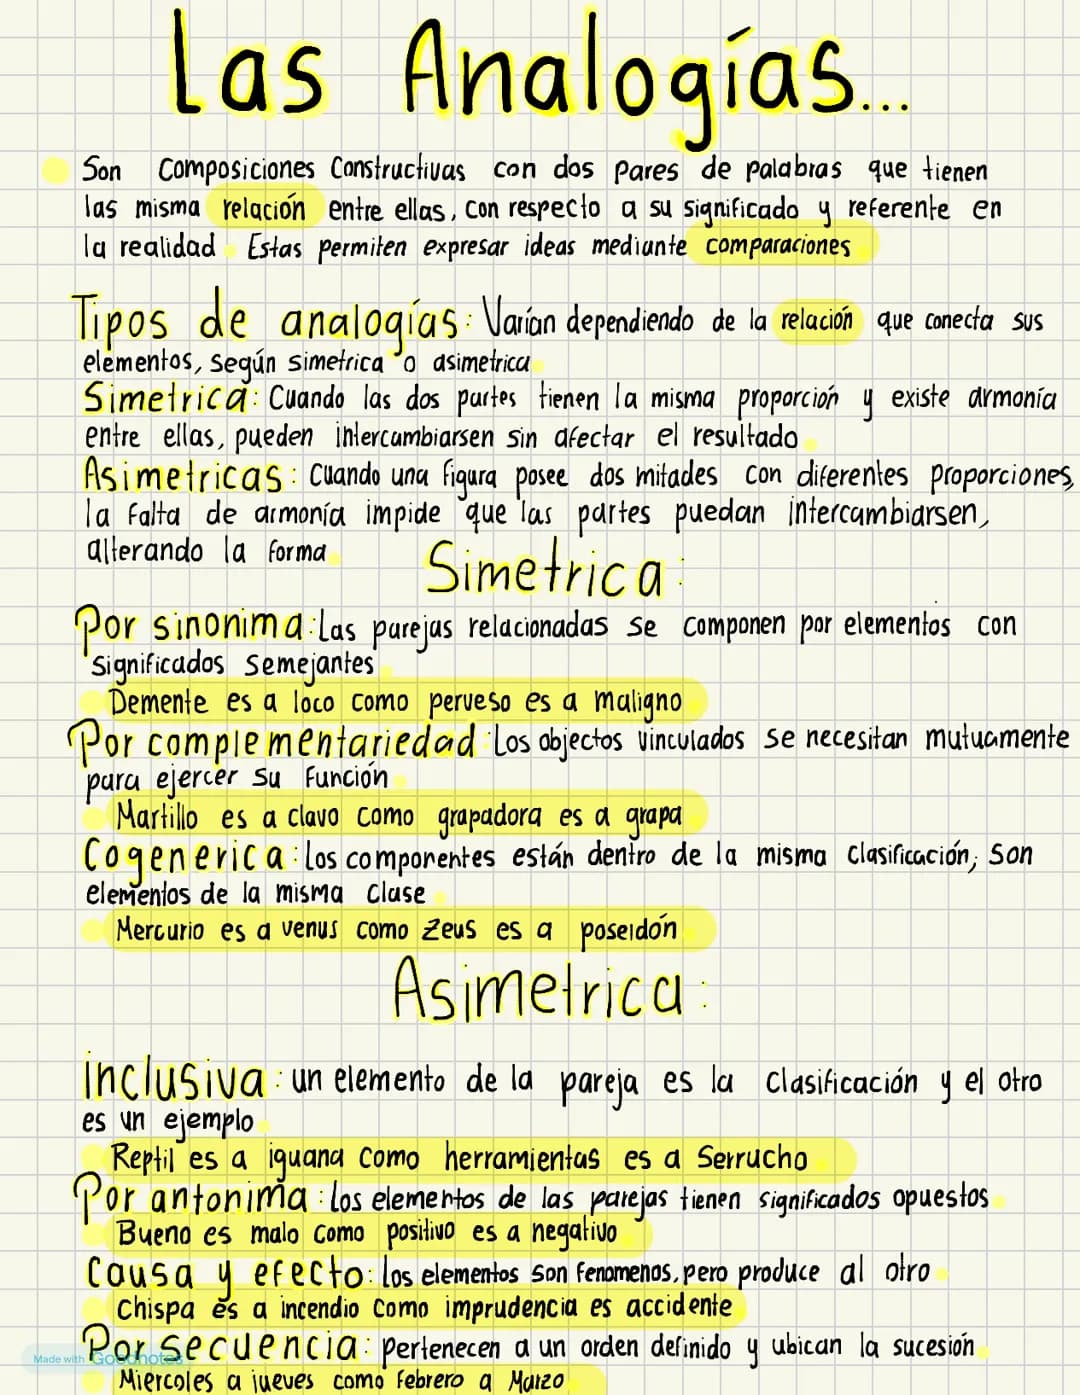 Las Analogías...
Son Composiciones Constructivas con dos pares de palabras que tienen
las misma relación entre ellas, con respecto a su significado y referente en
la realidad. Estas permiten expresar ideas mediante comparaciones.
Tipos de analogías: Varían dependiendo de la relación que conecta sus
elementos, según simetrica o asimetrica.
Simetrica: Cuando las dos partes tienen la misma proporción y existe armonía
entre ellas, pueden intercambiarsen sin afectar el resultado.
Asimetricas: Cuando una figura posee dos mitades con diferentes proporciones,
la falta de armonía impide que las partes puedan intercambiarsen,
alterando la forma.
Simetrica:
Por sinonima: Las parejas relacionadas se componen por elementos con
significados semejantes.
Demente es a loco como perveso es a maligno
Por complementariedad: Los objectos vinculados se necesitan mutuamente
para ejercer su función.
Martillo es a clavo como grapadora es a grapa.
Cogenerica: los componentes están dentro de la misma clasificación, son
elementos de la misma clase.
Mercurio es a venus como Zeus es a poseidón.
Asimetrica:
inclusiva: un elemento de la pareja es la clasificación y el otro
es un ejemplo.
Reptil es a iguana como herramientas es a serrucho.
Por antonima: los elementos de las parejas tienen significados opuestos.
Bueno es malo como positivo es a negativo.
Causa y efecto: los elementos son fenomenos, pero produce al otro.
Chispa es a incendio como imprudencia es accidente
Por secuencia: pertenecen a un orden definido y ubican la sucesión.
Made with Goodnotes
Miercoles a jueves como febrero a Marzo.